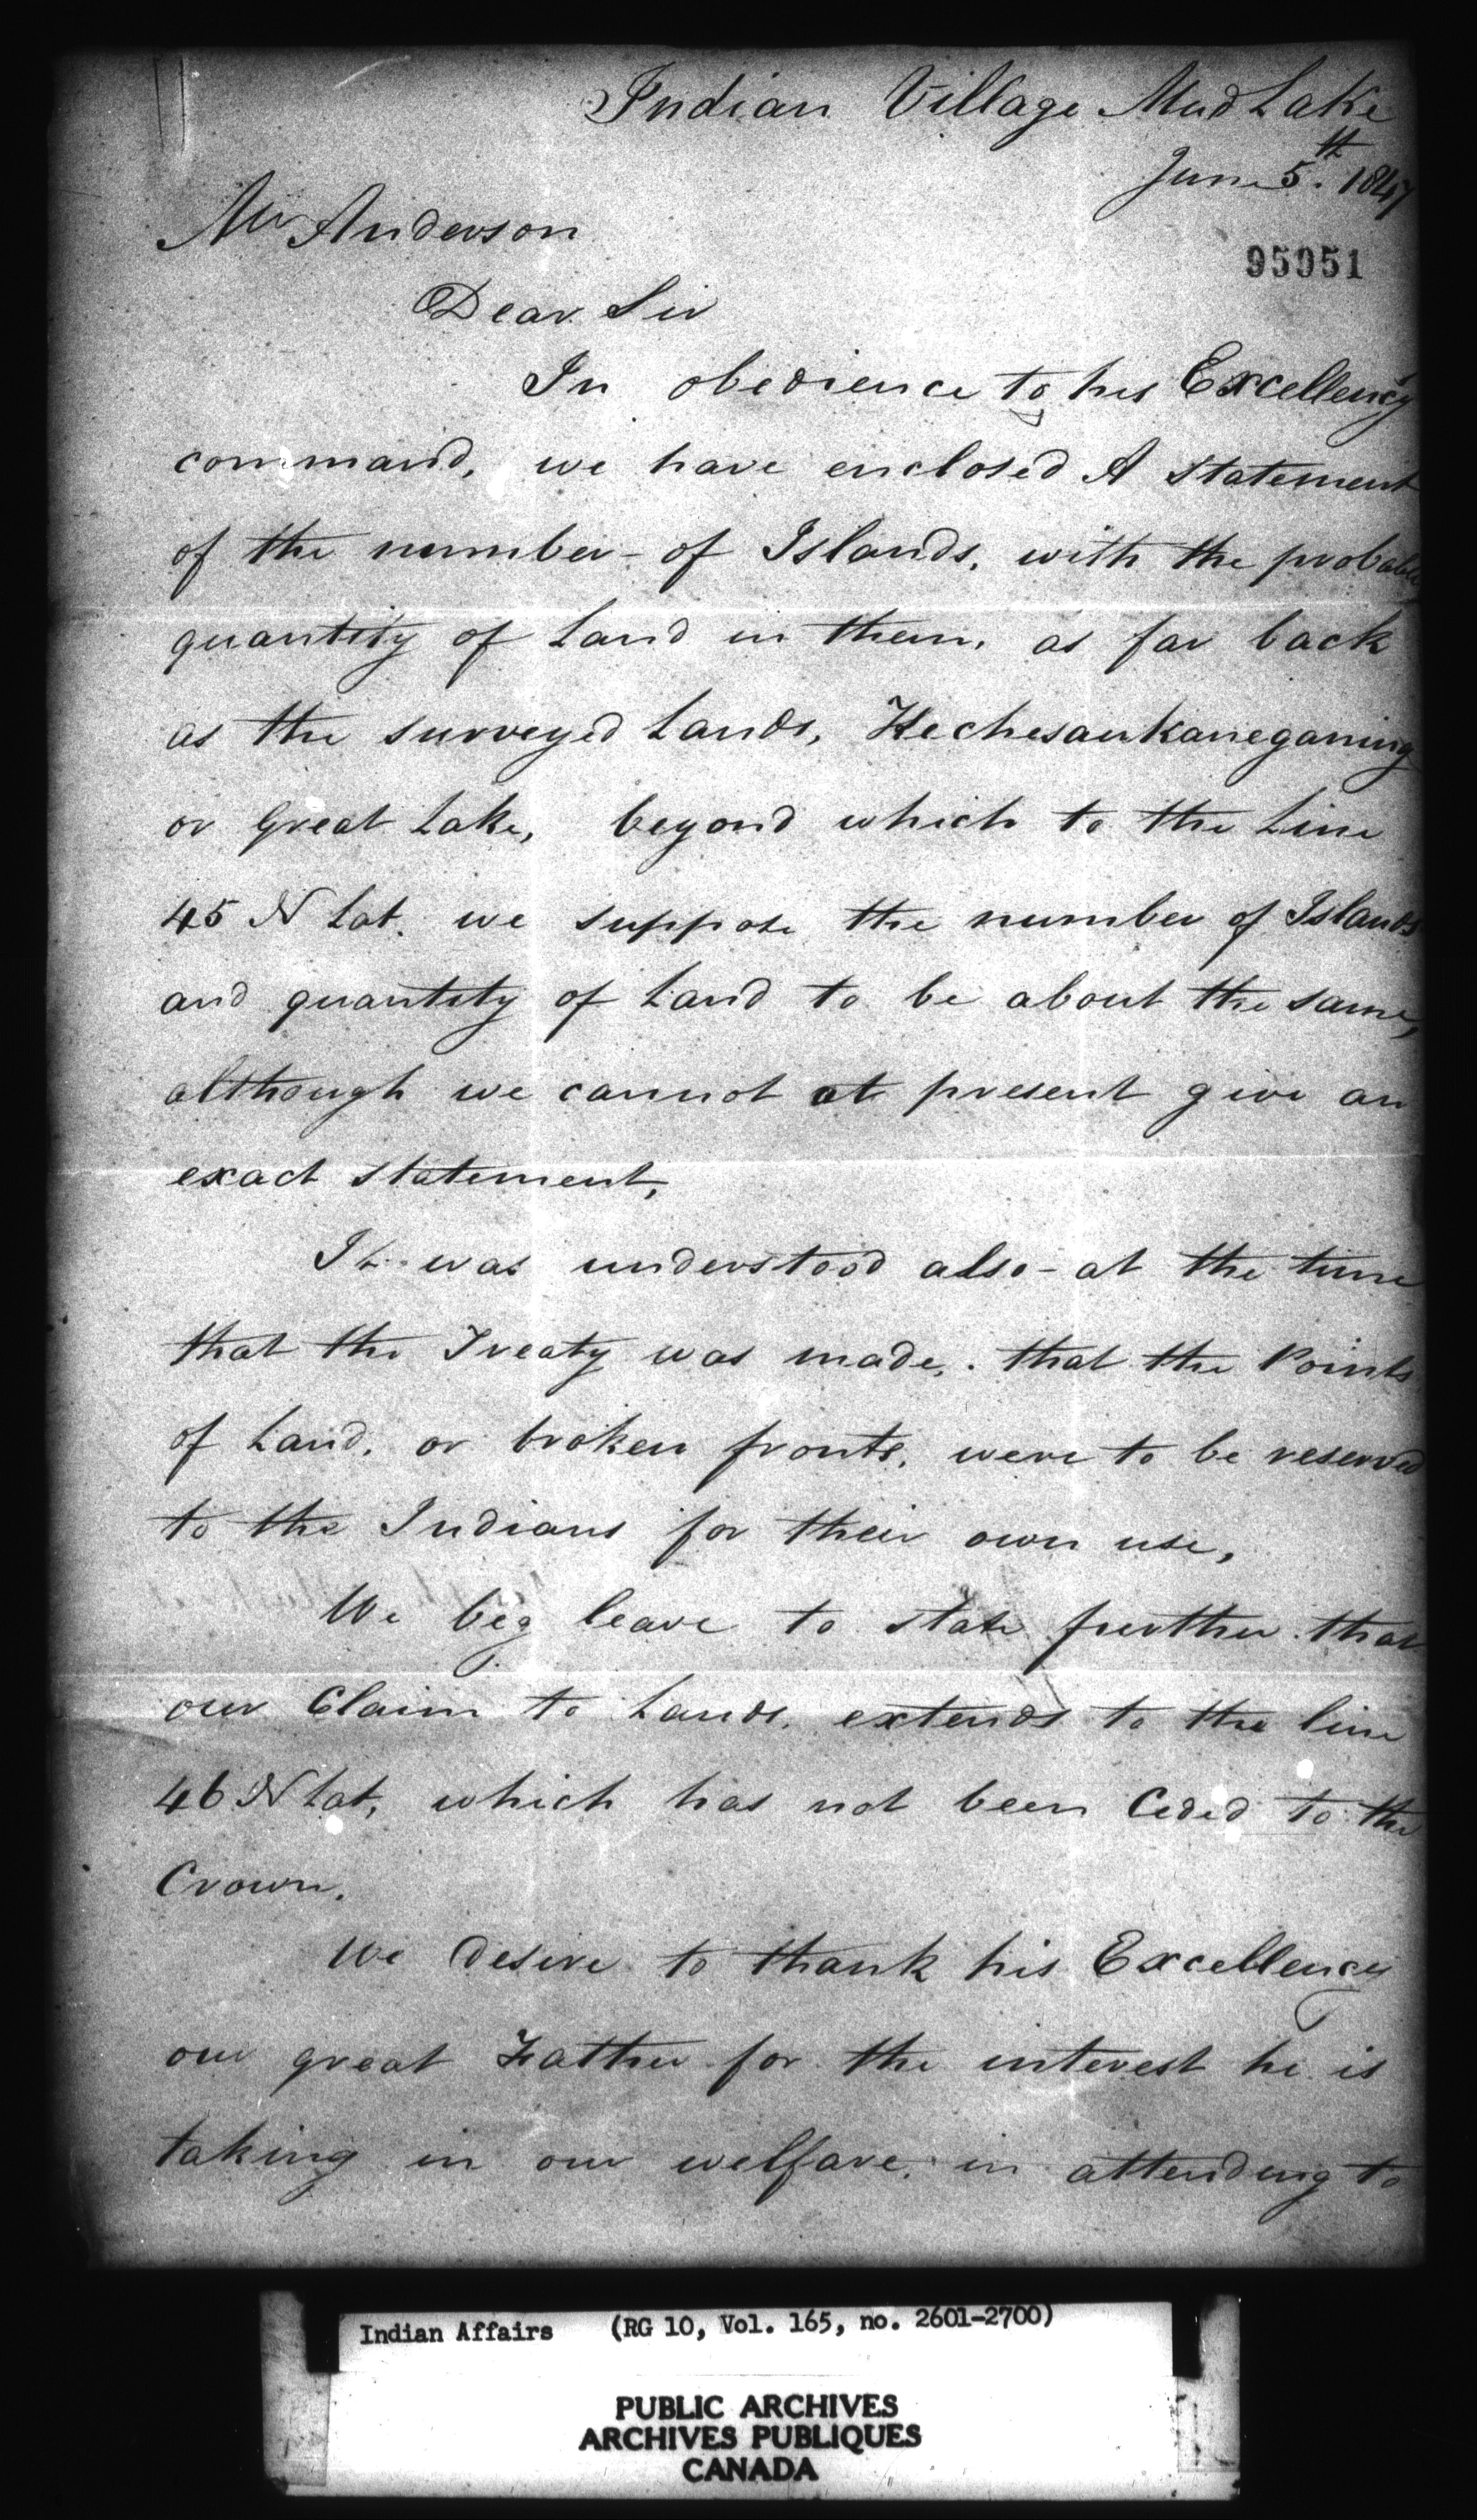 Indian Village Mud Lake
June 5th. 1847
Mr Anderson
95951
Dear Sir
In obedience to his Excellency's
command, we have enclosed A statement
of the number of Islands, with the probable
quantity of Land in them, as far back
as the surveyed Lands, Kechesaukanegaming
or Great Lake, beyond which to the Line
45 N Lat. we suppose the number of Islands
and quantity of Land to be about the same,
although we cannot at present give an
exact statement,
It was understood also - at the time
that the Treaty was made, that the Points
of Land, or broken fronts, were to be reserved
to the Indians for their own use,
We beg leave to state further that
our Claim to Lands, extends to the line
46 N Lat, which has not been Ceded to the
Crown.
We desire to thank his Excellency
our great Father for the interest he is
taking in our welfare, in attending to
Indian Affairs (RG 10, Vol. 165, no. 2601-2700)
PUBLIC ARCHIVES
ARCHIVES PUBLIQUES
CANADA